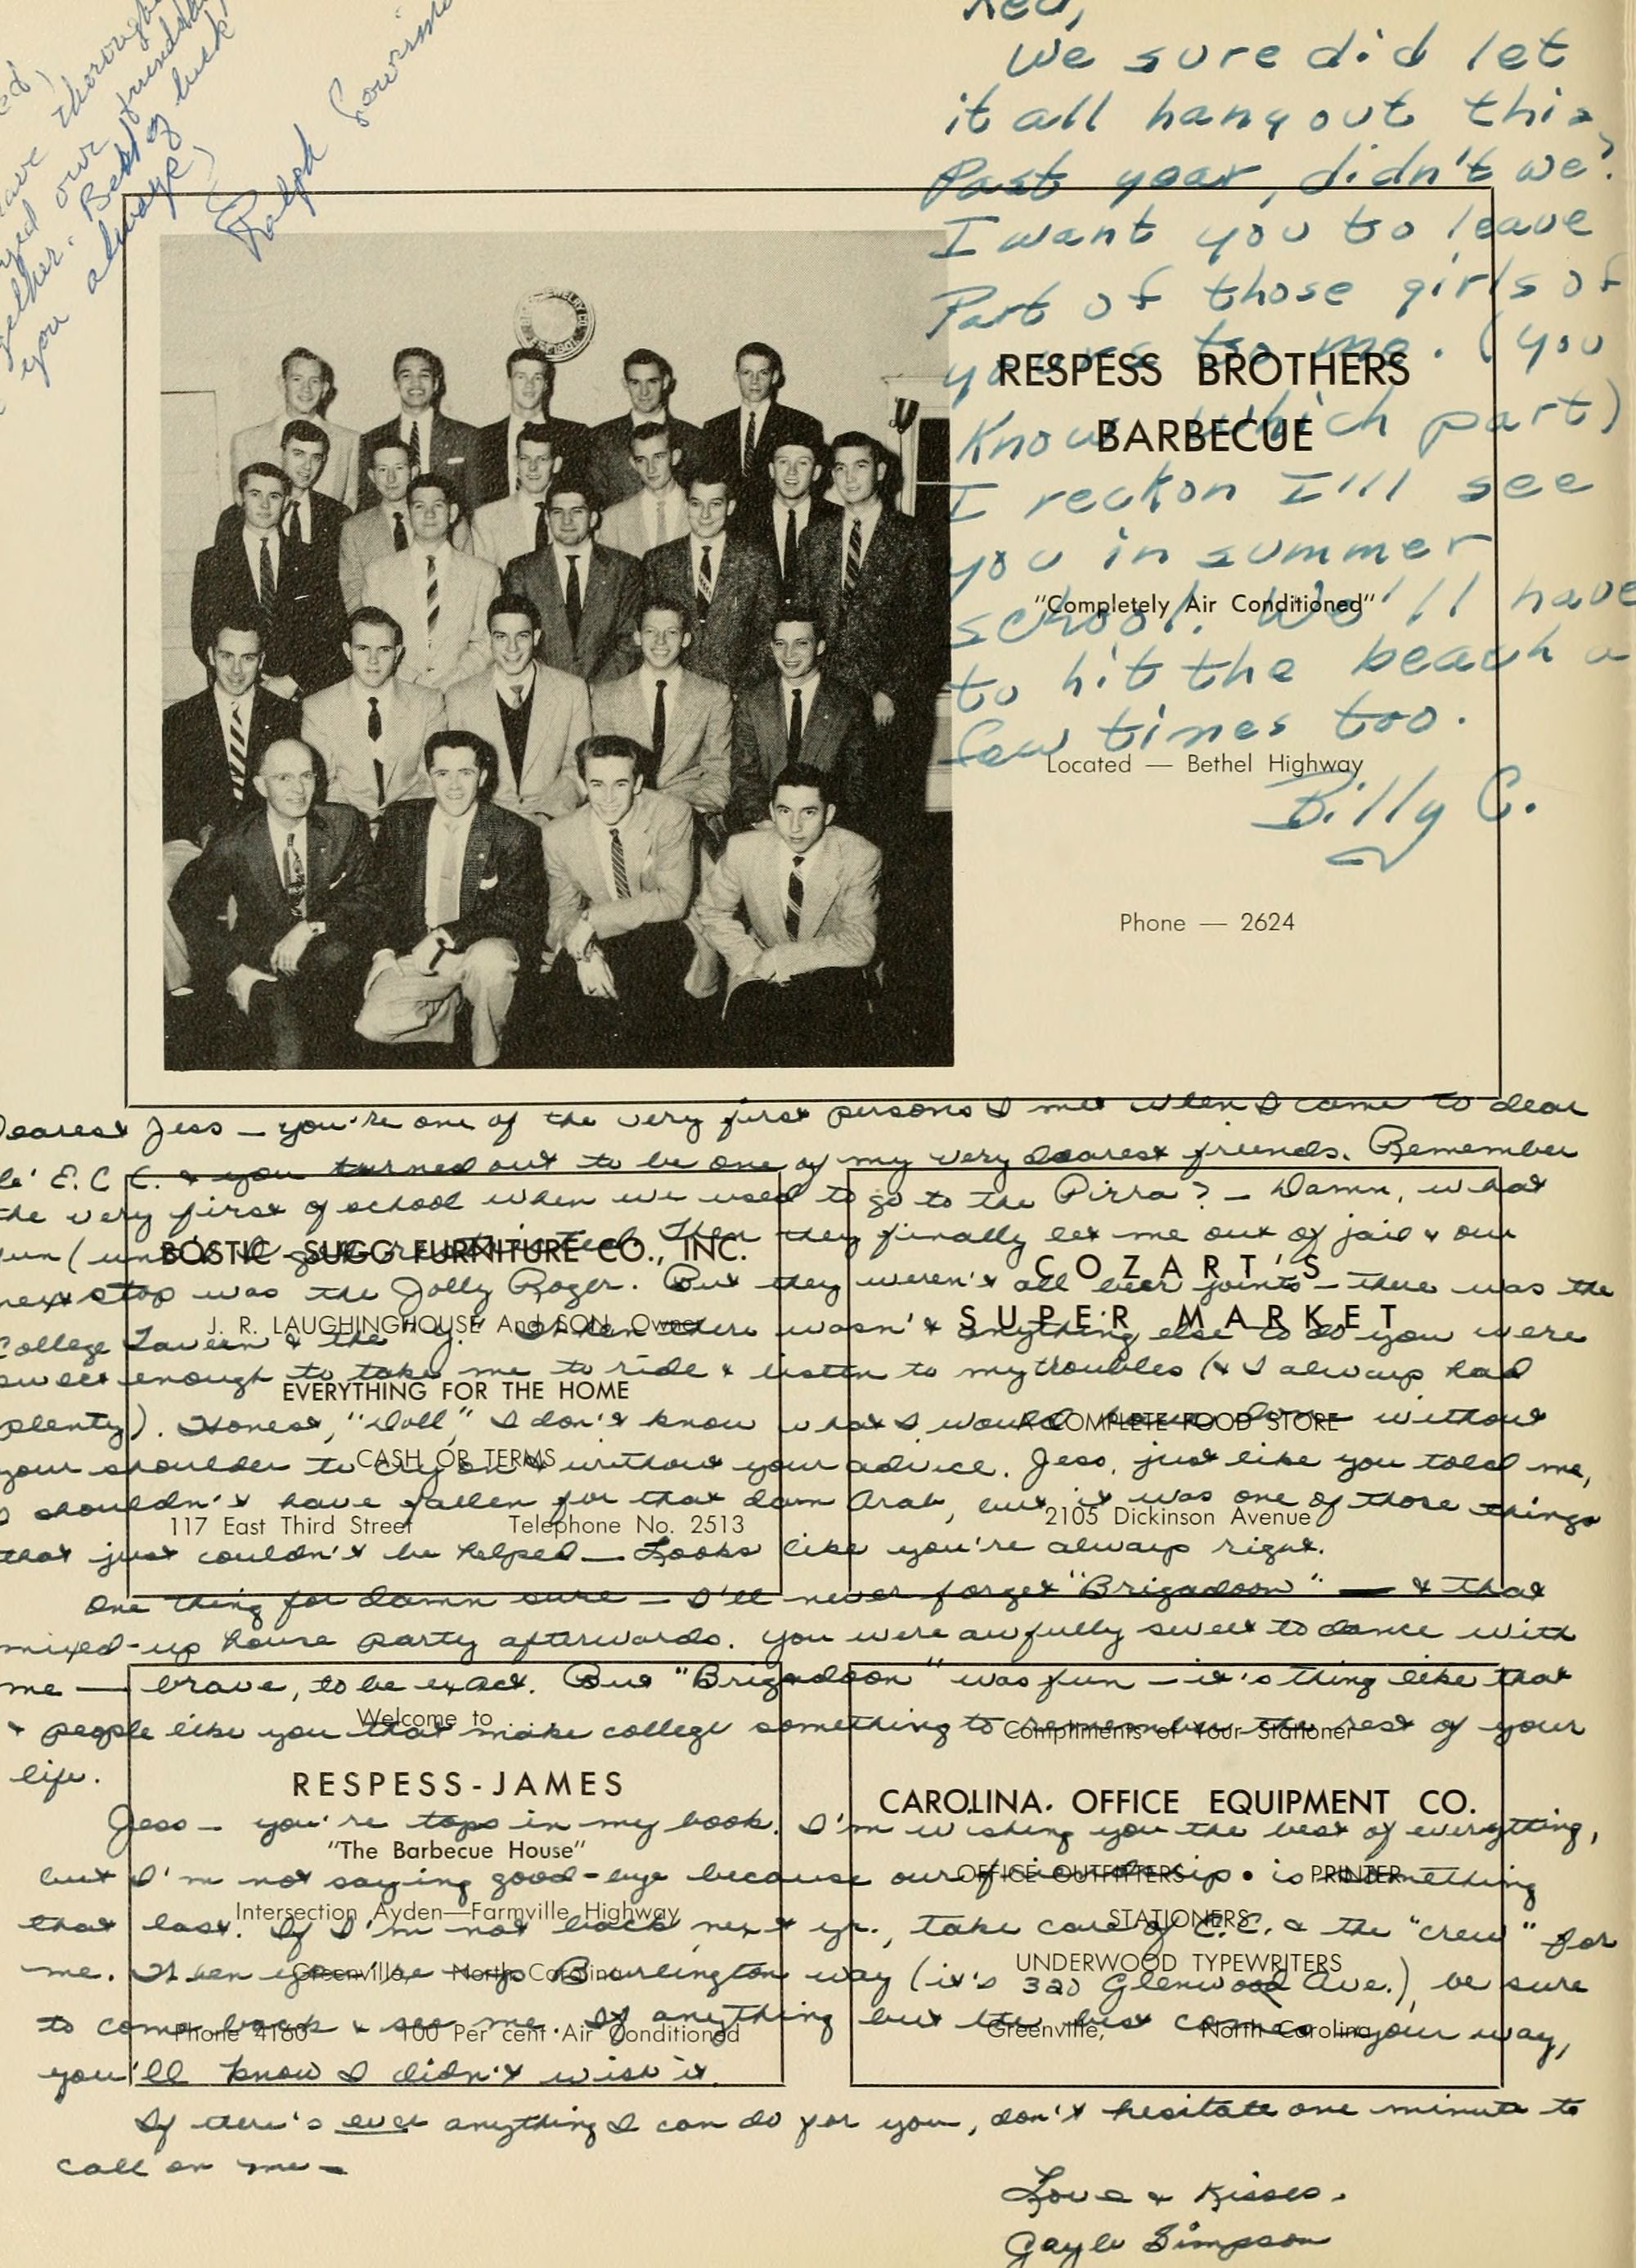 Red,
We sure did let
it all hang out this
Past year, didn't we?
I want you to leave
Part of those girls of
yours to me. (you
Know which part)
I reckon I'll see
you in summer
school. We'll have
to hit the beach a
few times too.
Billy C.
thoroughly
our friendship
Best of luck
you always
Ralph
RESPESS BROTHERS
BARBECUE
"Completely Air Conditioned"
Located — Bethel Highway
Phone — 2624
Dearest Jess — you're one of the very first persons I met when I came to dear
ole' E.C.C. & you turned out to be one of my very dearest friends. Remember
the very first of school when we used to go to the Pizza? — Damn, what
fun (until I got restricted. Then they finally let me out of jail & our
next stop was the Jolly Roger. But they weren't all beer joints — there was the
College Tavern & the "Y." When there wasn't anything else to do you were
sweet enough to take me to ride & listen to my troubles (& I always had
plenty). Honest, "Doll," I don't know what I would have done without
your shoulder to cry on & without your advice. Jess, just like you told me,
I shouldn't have fallen for that damn Arab, but it was one of those things
that just couldn't be helped — Looks like you're always right.
One thing for damn sure — I'll never forget "Brigadoon" — & that
mixed-up house party afterwards. You were awfully sweet to dance with
me — brave, to be exact. But "Brigadoon" was fun — it's thing like that
& people like you that make college something to remember the rest of your
life.
Jess — you're tops in my book. I'm wishing you the best of everything,
but I'm not saying good-bye because our friendship is something
that last. If I'm not back next yr., take care of E.C. & the "crew" for
me. When you're up Burlington way (it's 320 Glenwood Ave.), be sure
to come back & see me. If anything but the best comes your way,
you'll know I didn't wish it.
If there's ever anything I can do for you, don't hesitate one minute to
call on me —
Love & Kisses,
Gayle Simpson
BOSTIC SUGG FURNITURE CO., INC.
J. R. LAUGHINGHOUSE And SON, Owner
EVERYTHING FOR THE HOME
CASH OR TERMS
117 East Third Street Telephone No. 2513
COZART'S
SUPER MARKET
A COMPLETE FOOD STORE
2105 Dickinson Avenue
Welcome to
RESPESS-JAMES
"The Barbecue House"
Intersection Ayden—Farmville Highway
Greenville, North Carolina
Phone 4160 100 Per cent Air Conditioned
Compliments of Your Stationer
CAROLINA OFFICE EQUIPMENT CO.
OFFICE OUTFITTERS • PRINTER
STATIONERS
UNDERWOOD TYPEWRITERS
Greenville, North Carolina